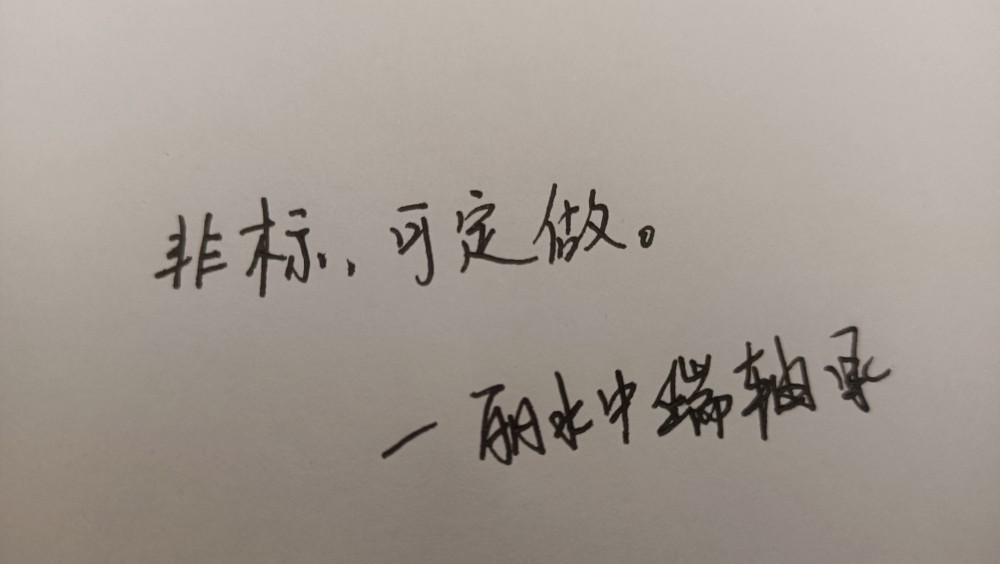 非标、可定做。
一丽水中端轴承